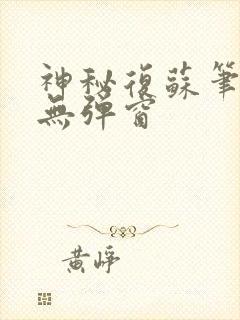 神秘復蘇筆
無彈窗
黄崢